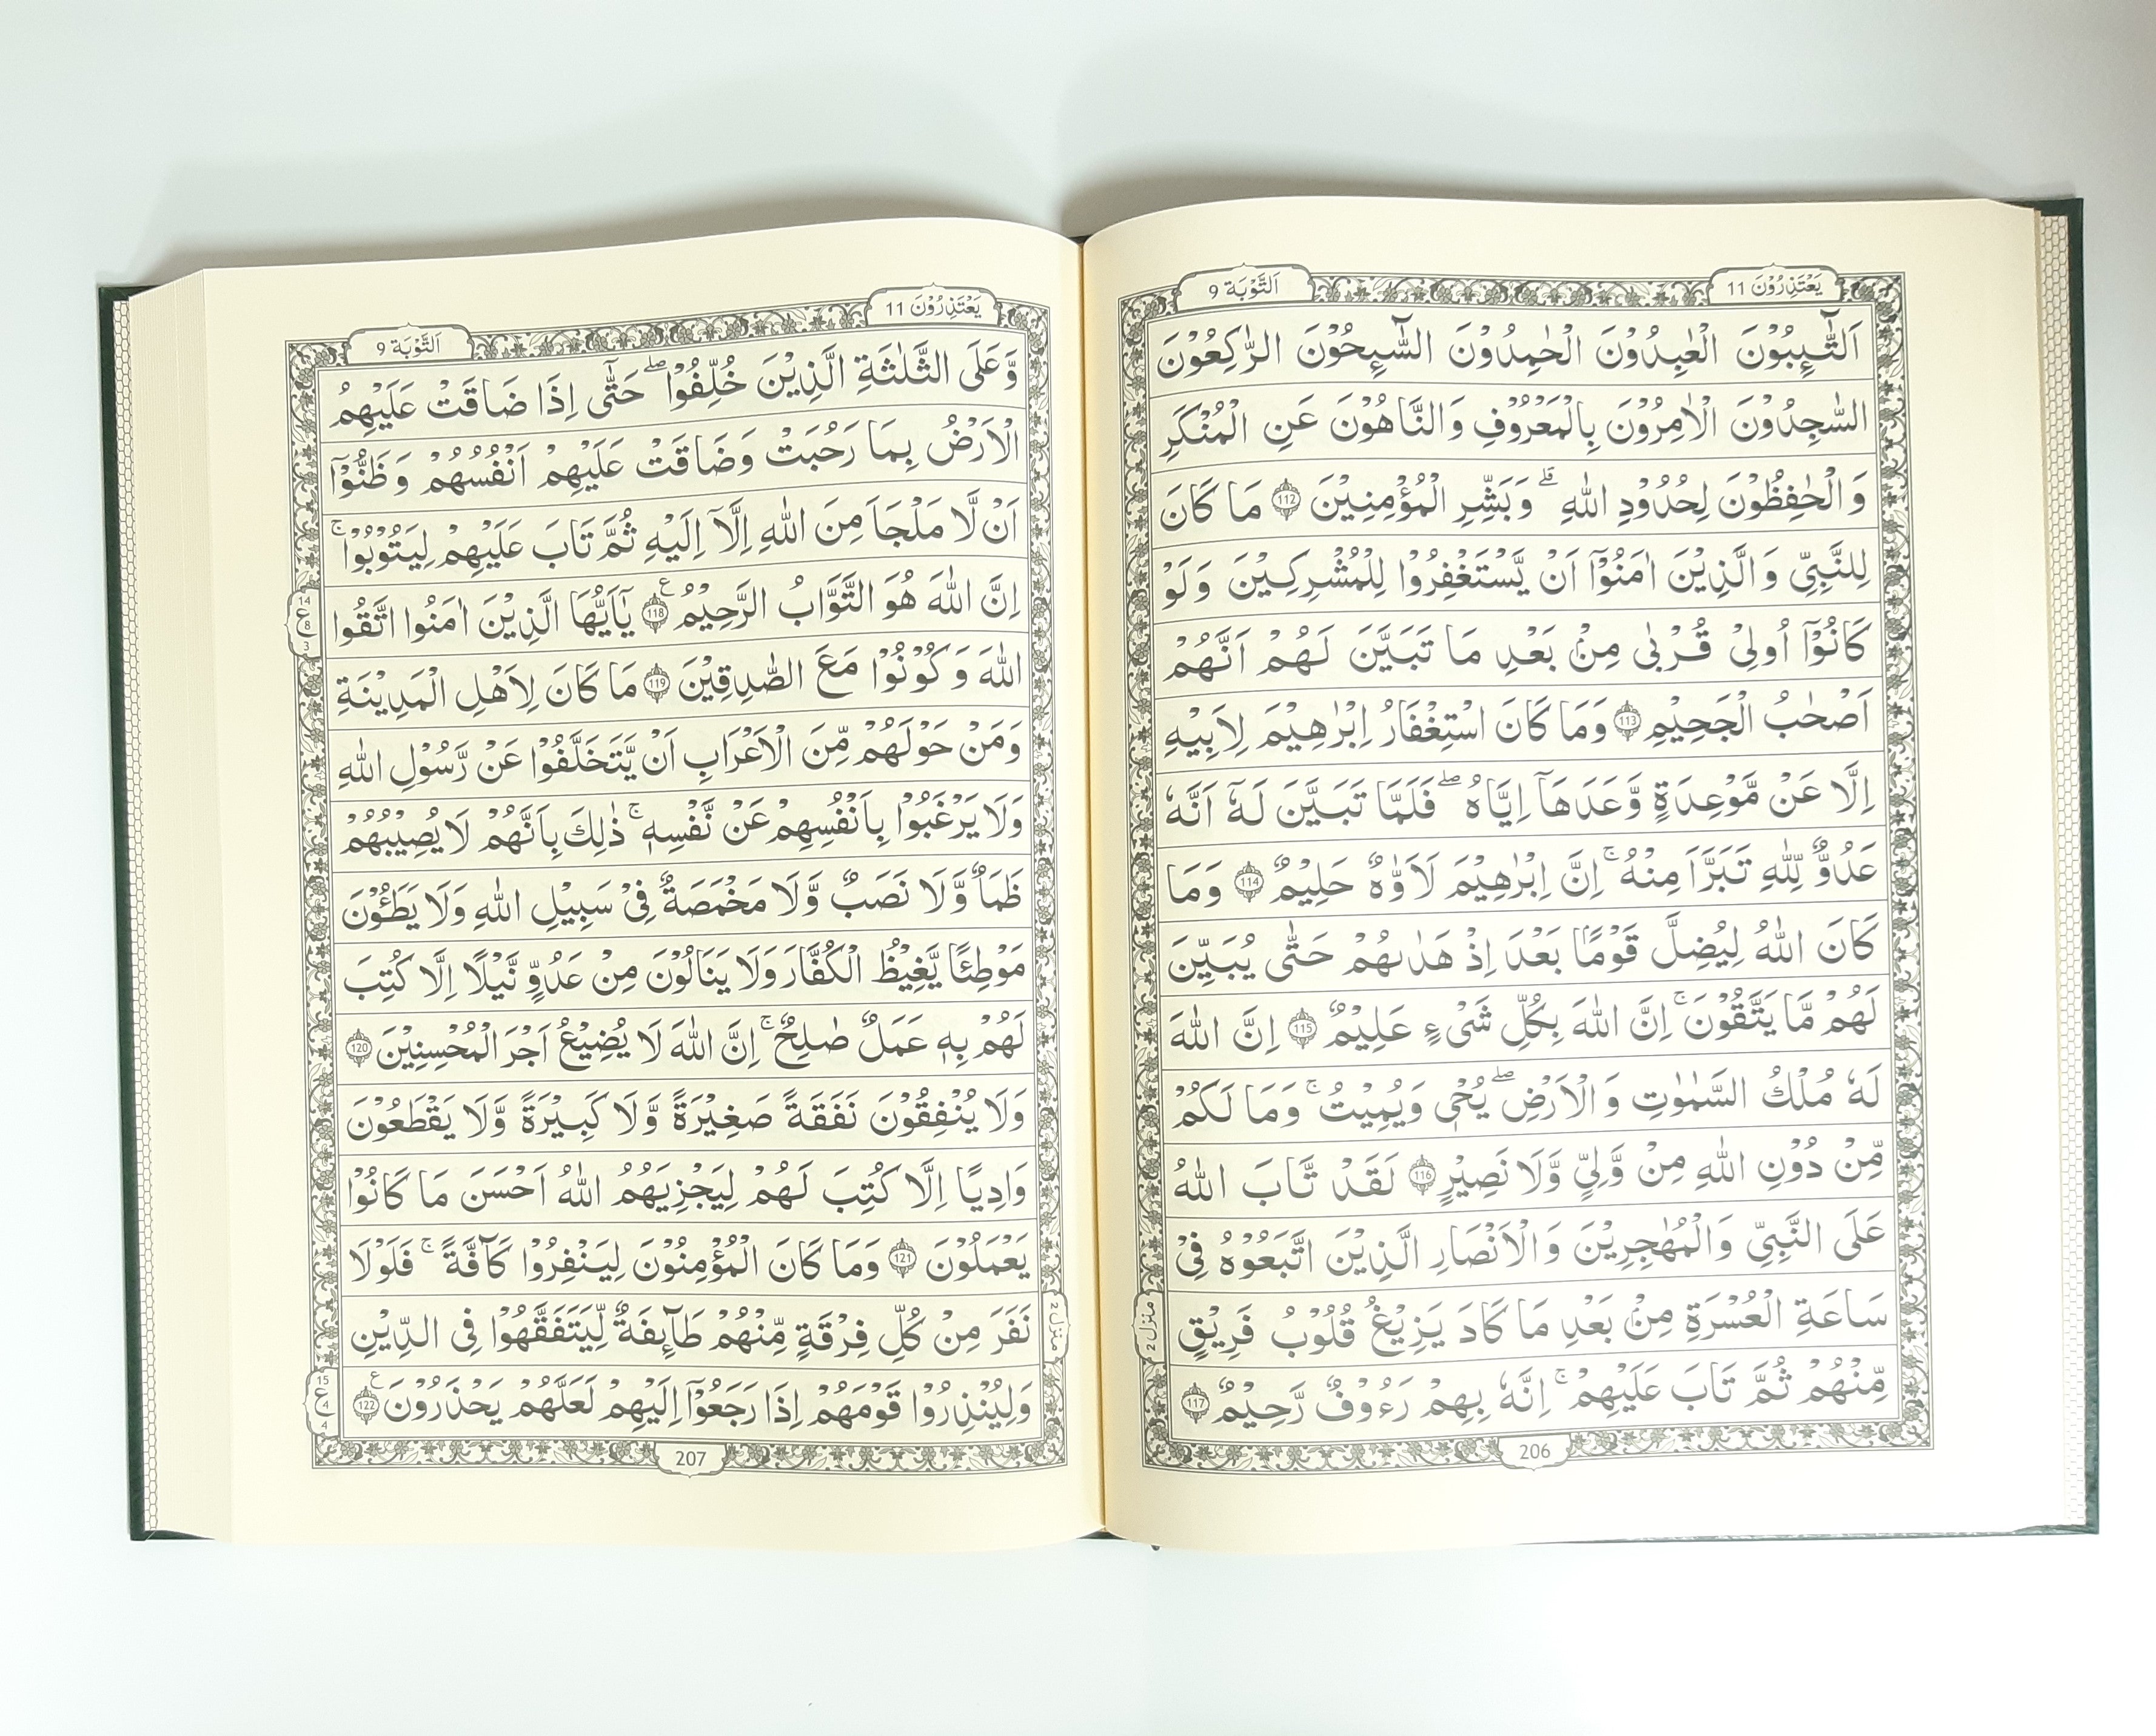 يَعْتَذِرُوْنَ 11
اَلتَّوْبَة 9
اَلتَّآئِبُوْنَ الْعٰبِدُوْنَ الْحٰمِدُوْنَ السَّآئِحُوْنَ الرّٰكِعُوْنَ
السّٰجِدُوْنَ الْاٰمِرُوْنَ بِالْمَعْرُوْفِ وَالنَّاهُوْنَ عَنِ الْمُنْكَرِ
وَالْحٰفِظُوْنَ لِحُدُوْدِ اللّٰهِ ۗ وَبَشِّرِ الْمُؤْمِنِيْنَ 112 مَا كَانَ
لِلنَّبِيِّ وَالَّذِيْنَ اٰمَنُوْٓا اَنْ يَّسْتَغْفِرُوْا لِلْمُشْرِكِيْنَ وَلَوْ
كَانُوْٓا اُولِيْ قُرْبٰى مِنْۢ بَعْدِ مَا تَبَيَّنَ لَهُمْ اَنَّهُمْ
اَصْحٰبُ الْجَحِيْمِ 113 وَمَا كَانَ اسْتِغْفَارُ اِبْرٰهِيْمَ لِاَبِيْهِ
اِلَّا عَنْ مَّوْعِدَةٍ وَّعَدَهَآ اِيَّاهُ ۖ فَلَمَّا تَبَيَّنَ لَهٗٓ اَنَّهٗ
عَدُوٌّ لِّلّٰهِ تَبَرَّاَ مِنْهُ ۚ اِنَّ اِبْرٰهِيْمَ لَاَوَّاهٌ حَلِيْمٌ 114 وَمَا
كَانَ اللّٰهُ لِيُضِلَّ قَوْمًۢا بَعْدَ اِذْ هَدٰىهُمْ حَتّٰى يُبَيِّنَ
لَهُمْ مَّا يَتَّقُوْنَ ۚ اِنَّ اللّٰهَ بِكُلِّ شَيْءٍ عَلِيْمٌ 115 اِنَّ اللّٰهَ
لَهٗ مُلْكُ السَّمٰوٰتِ وَالْاَرْضِ ۖ يُحْيٖ وَيُمِيْتُ ۚ وَمَا لَكُمْ
مِّنْ دُوْنِ اللّٰهِ مِنْ وَّلِيٍّ وَّلَا نَصِيْرٍ 116 لَقَدْ تَّابَ اللّٰهُ
عَلَى النَّبِيِّ وَالْمُهٰجِرِيْنَ وَالْاَنْصَارِ الَّذِيْنَ اتَّبَعُوْهُ فِيْ
سَاعَةِ الْعُسْرَةِ مِنْۢ بَعْدِ مَا كَادَ يَزِيْغُ قُلُوْبُ فَرِيْقٍ
مِّنْهُمْ ثُمَّ تَابَ عَلَيْهِمْ ۚ اِنَّهٗ بِهِمْ رَءُوْفٌ رَّحِيْمٌ 117
منزل 2
206
يَعْتَذِرُوْنَ 11
اَلتَّوْبَة 9
وَّعَلَى الثَّلٰثَةِ الَّذِيْنَ خُلِّفُوْا ۖ حَتّٰٓى اِذَا ضَاقَتْ عَلَيْهِمُ
الْاَرْضُ بِمَا رَحُبَتْ وَضَاقَتْ عَلَيْهِمْ اَنْفُسُهُمْ وَظَنُّوْٓا
اَنْ لَّا مَلْجَاَ مِنَ اللّٰهِ اِلَّآ اِلَيْهِ ثُمَّ تَابَ عَلَيْهِمْ لِيَتُوْبُوْا ۚ
اِنَّ اللّٰهَ هُوَ التَّوَّابُ الرَّحِيْمُ 118 يٰٓاَيُّهَا الَّذِيْنَ اٰمَنُوا اتَّقُوا
اللّٰهَ وَكُوْنُوْا مَعَ الصّٰدِقِيْنَ 119 مَا كَانَ لِاَهْلِ الْمَدِيْنَةِ
وَمَنْ حَوْلَهُمْ مِّنَ الْاَعْرَابِ اَنْ يَّتَخَلَّفُوْا عَنْ رَّسُوْلِ اللّٰهِ
وَلَا يَرْغَبُوْا بِاَنْفُسِهِمْ عَنْ نَّفْسِهٖ ۚ ذٰلِكَ بِاَنَّهُمْ لَا يُصِيْبُهُمْ
ظَمَاٌ وَّلَا نَصَبٌ وَّلَا مَخْمَصَةٌ فِيْ سَبِيْلِ اللّٰهِ وَلَا يَطَـُٔوْنَ
مَوْطِئًا يَّغِيْظُ الْكُفَّارَ وَلَا يَنَالُوْنَ مِنْ عَدُوٍّ نَّيْلًا اِلَّا كُتِبَ
لَهُمْ بِهٖ عَمَلٌ صٰلِحٌ ۚ اِنَّ اللّٰهَ لَا يُضِيْعُ اَجْرَ الْمُحْسِنِيْنَ 120
وَلَا يُنْفِقُوْنَ نَفَقَةً صَغِيْرَةً وَّلَا كَبِيْرَةً وَّلَا يَقْطَعُوْنَ
وَادِيًا اِلَّا كُتِبَ لَهُمْ لِيَجْزِيَهُمُ اللّٰهُ اَحْسَنَ مَا كَانُوْا
يَعْمَلُوْنَ 121 وَمَا كَانَ الْمُؤْمِنُوْنَ لِيَنْفِرُوْا كَآفَّةً ۚ فَلَوْلَا
نَفَرَ مِنْ كُلِّ فِرْقَةٍ مِّنْهُمْ طَآئِفَةٌ لِّيَتَفَقَّهُوْا فِى الدِّيْنِ
وَلِيُنْذِرُوْا قَوْمَهُمْ اِذَا رَجَعُوْٓا اِلَيْهِمْ لَعَلَّهُمْ يَحْذَرُوْنَ 122
14
ع
8
3
15
ع
4
4
منزل 2
207